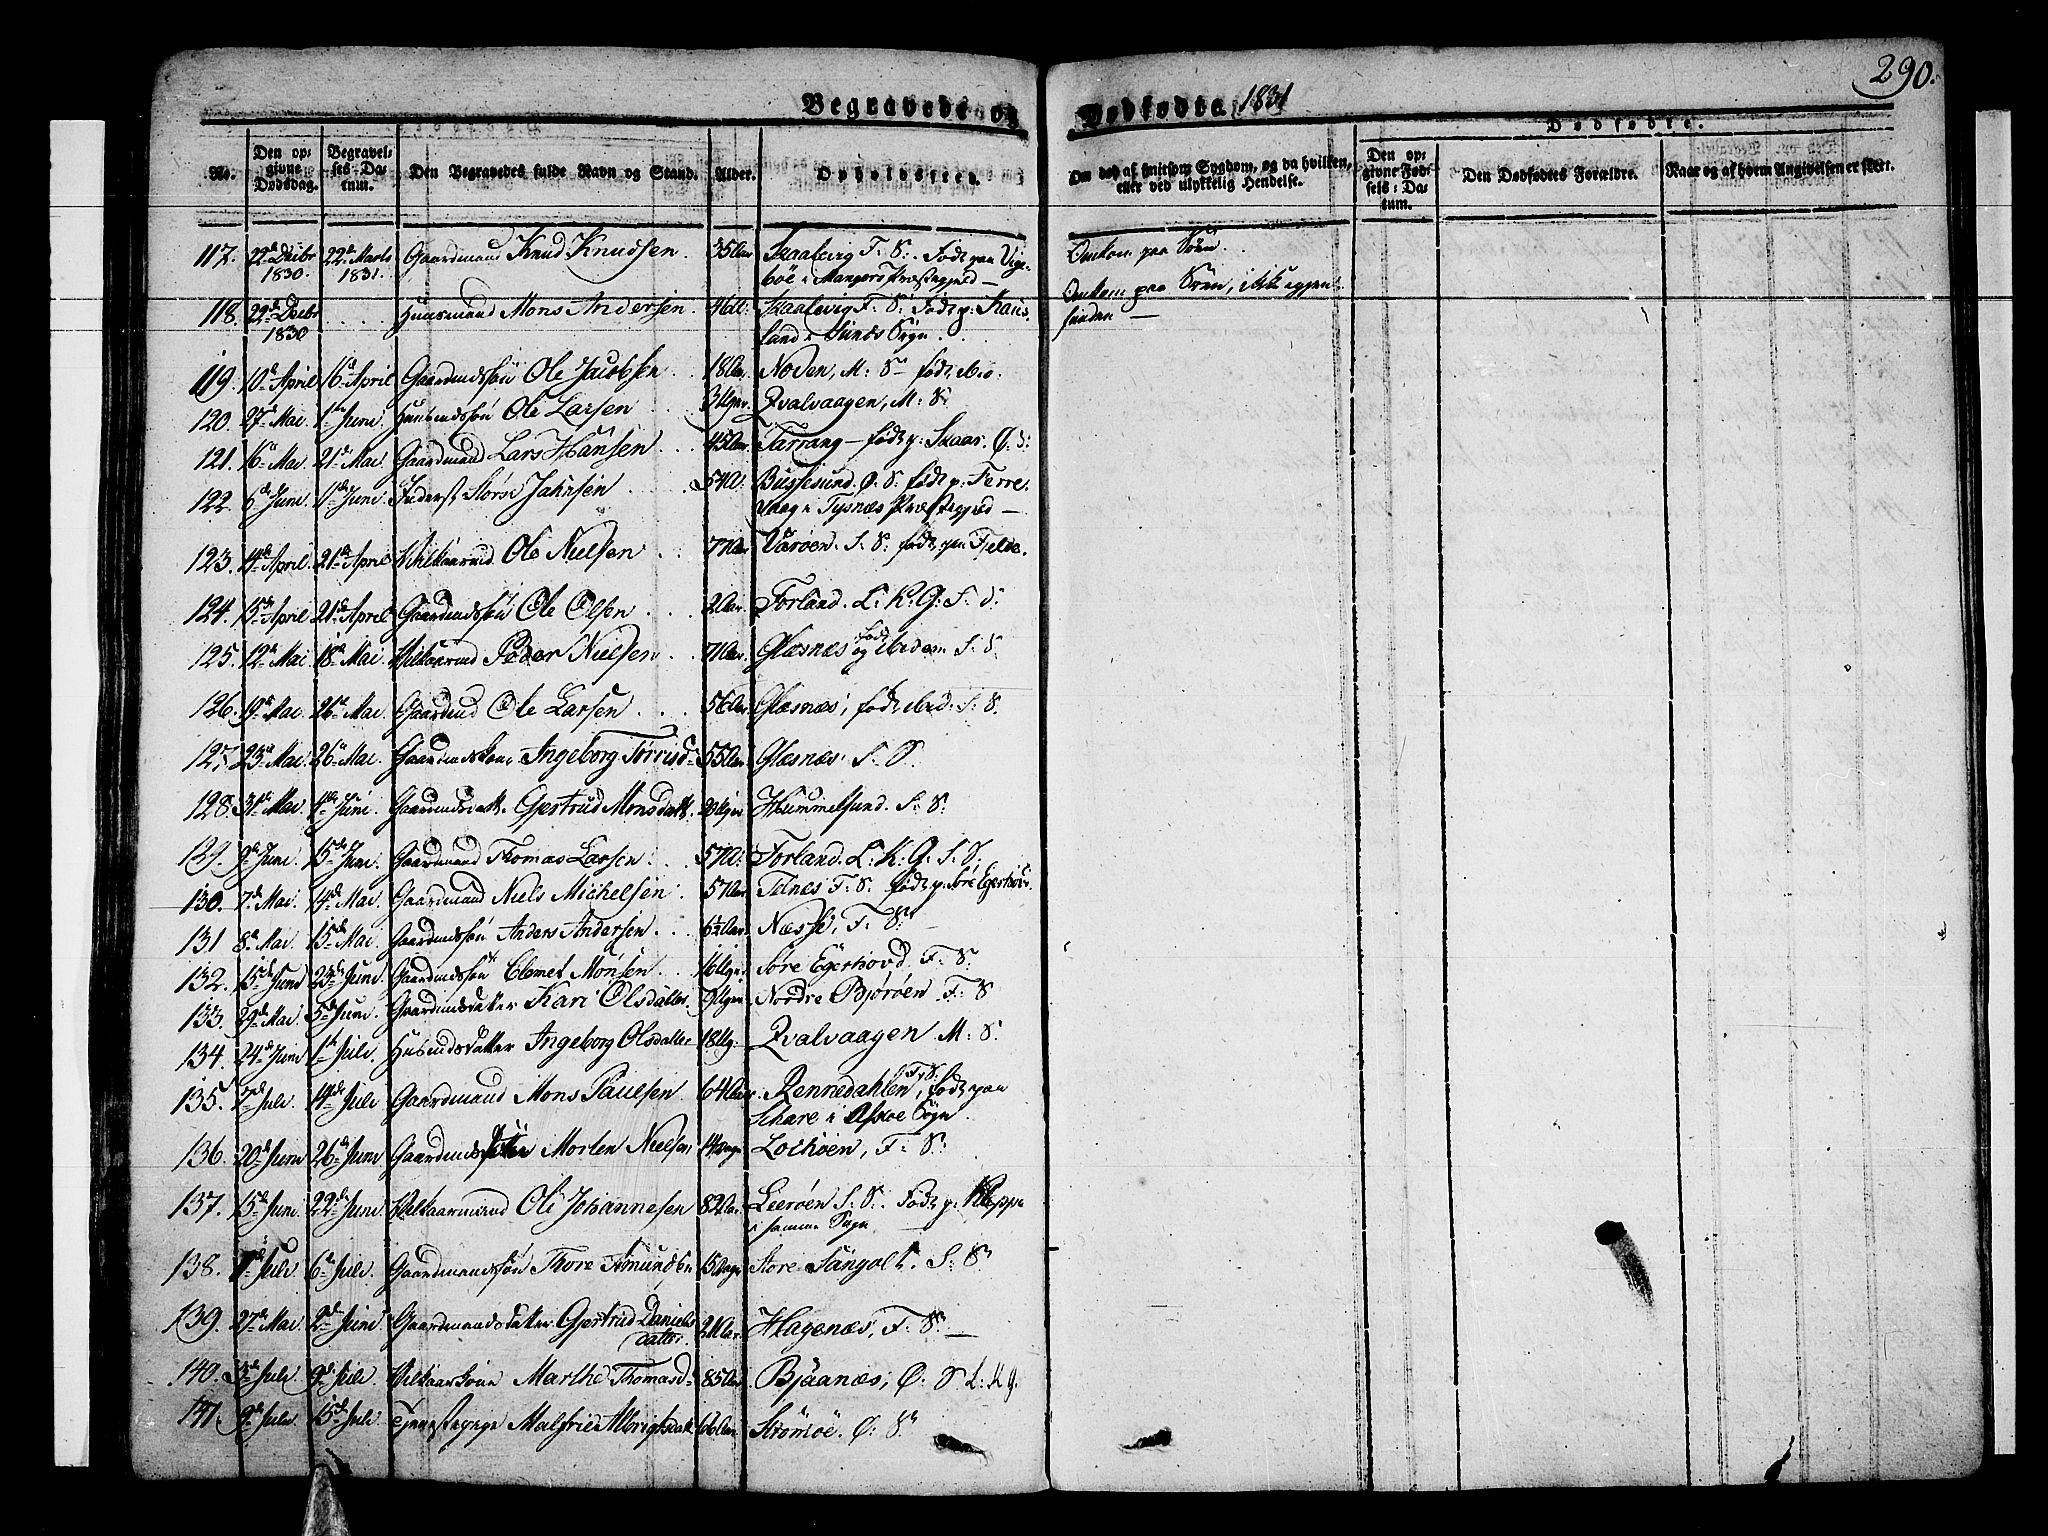 290.
Begravede og Dødfødte 1831
Dødfødte.
No.
Den op-
givne
Dødsdag.
Begravel-
ses-Da-
tum.
Den Begravedes fulde Navn og Stand.
Alder.
Opholdssted.
Om død af smitsom Sygdom, og da hvilken,
eller ved ulykkelig Hendelse.
Den op-
givne Fød-
sels-Da-
tum.
Den Dødfødtes Forældre.
Naar og af hvem Angivelsen er skeet.
117. 22de Decbr 22de Marts Gaardmand Knud Knudsen. 35 Aar Skaalevig F: S:. Født paa
1830. 1831. i Mangers Præstegjeld — Omkom paa Søen.
118. 22de Decbr . . . Huusmand Mons Andersen. 46 A: Skaalevig F: S: Født p: Kaus-
1830 land i Sunds Sogn. Omkom paa Søen, ikke igjen
funden —
119. 10de April 16de April Gaardmdssøn Ole Jacobsen . . 18 Aar. Noden, M: Sn født ibid.
120. 27de Mai. 1ste Juni. Husmdssøn Ole Larsen . . . 3 Uger. Qvalvaagen, M: S:
121. 16de Mai 21de Mai Gaardmand Lars Hansen . . . 45 Aar Tarrang — født p: Skaar. Ø: S:
122. 6te Juni 11de Juni Inderst Størse Jahnsen . . . 57 A: Bussesund. Ø. S: født p: Ferre-
vaag i Tysnæs Præstegjeld —
123. 14de April. 21de April Vilkaarmd Ole Nielsen . . 77 Aar Varøen. S: S: født paa Fjelde.
124. 15de April 21de April Gaardmdssøn Ole Olsen . . . 2 Aar. Forland. L: K: G: S: S:
125. 12te Mai 18de Mai Vilkaarmd Peder Nielsen . . 71 Aar. Glæsnæs født og ibidem S: S.
126. 19de Mai 26de Mai. Gaardmd Ole Larsen . . . 56 Aar Glæsnæs, født ibid: S: S.
127. 23de Mai. 26de Mai. Gaardmdskone Ingeborg Torrisd: 55 Aar. Glæsnæs S: S.
128. 31te Mai 4de Juni Gaardmdsdatt. Gjertrud Monsdatt. Uger Hummelsund. S: S:
129. 9de Juni. 15de Juni. Gaardmand Thomas Larsen . . . 57 A: Forland. L: K: G. S. S.
130. 7de Mai 14de Mai. Gaardmand Niels Michelsen . 57 Aar Telnæs F: S: født p: Søre Egerhovd.
131 8de Mai. 15de Mai. Gaardmdssøn Anders Andersen . . . 6½ Aar. Næsse, F: S: —
132. 15de Juni 23de Juni. Gaardmdssøn Clemet Monsen . . 16 Uger. Søre Egerhovd. F: S:
133. 29de Mai 5te Juni. Gaardmdsdatter Kari Olsdatter 9 Uger Nordre Bjørøen F: S
134. 24de Juni 1ste Juli. Husmdsdatter Ingeborg Olsdatter 18 Ug: Qvalvaagen M: S.
135. 7de Juli. 14de Juli Gaardmand Mons Paulsen 64 Aar. Rennedahlen F: S:, født paa
Schare i Askøe Sogn.
136. 20de Juni 26de Juni Gaardmdssøn Morten Nielsen 14 Dage Lochøen, F: S:
137. 15de Juni 22de Juni. Vilkaarmand Ole Johannesen 82 Aar. Leerøen S: S. Født p: Kleppe
i samme Sogn —
138. 1ste Juli 6te Juli. Gaardmandssøn Thore Amundsen 15 Dage Store Sangolt. S: Sn
139. 27de Mai 2de Juni Gaardmandsdatter Gjertrud Daniels
datter. 21 Aar. Hagenæs, F: S: —
140. 3de Juli 9de Juli. Vilkaarkone Marthe Thomasd: 85 Aar Bjåanæs, Ø: S L: K G:
141 9de Juli. 15de Juli Tjenestepige Malfrie Albrigtsdatt 66 Aar. Strømøe. Ø: Sn